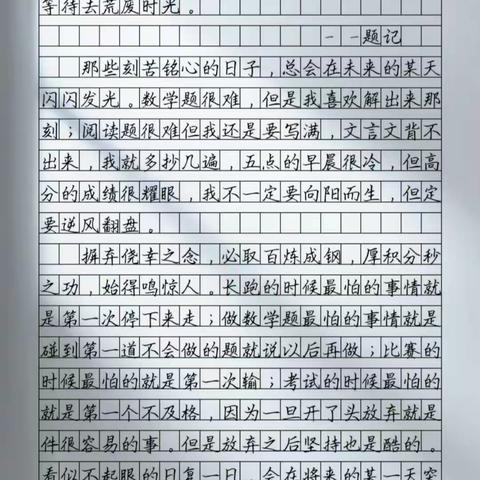 等待去荒废时光。
--题记
那些刻苦铭心的日子，总会在未来的某天
闪闪发光。数学题很难，但是我喜欢解出来那
刻；阅读题很难但我还是要写满，文言文背不
出来，我就多抄几遍，五点的早晨很冷，但高
分的成绩很耀眼，我不一定要向阳而生，但定
要逆风翻盘。
摒弃侥幸之念，必取百炼成钢，厚积分秒
之功，始得鸣惊人。长跑的时候最怕的事情就
是第一次停下来走；做数学题最怕的事情就是
碰到第一道不会做的题就说以后再做；比赛的
时候最怕的就是第一次输；考试的时候最怕的
就是第一个不及格，因为一旦开了头放弃就是
件很容易的事。但是放弃之后坚持也是酷的。
看似不起眼的日复一日，会在将来的某一天突